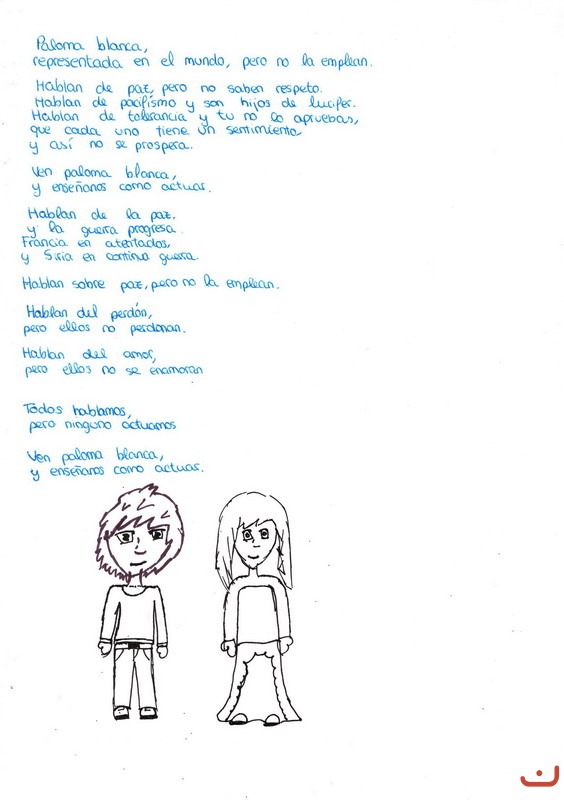 Paloma blanca,
representada en el mundo, pero no la emplean.
Hablan de paz, pero no saben respeto.
Hablan de pacifismo y son hijos de lucifer.
Hablan de tolerancia y tu no lo apruebas,
que cada uno tiene un sentimiento
y así no se prospera.
Ven paloma blanca,
y enseñanos como actuar.
Hablan de la paz.
y la guerra progresa.
Francia en atentados,
y Siria en continua guerra.
Hablan sobre paz, pero no la emplean.
Hablan del perdón,
pero ellos no perdonan.
Hablan del amor,
pero ellos no se enamoran
Todos hablamos,
pero ninguno actuamos
Ven paloma blanca,
y enseñanos como actuar.